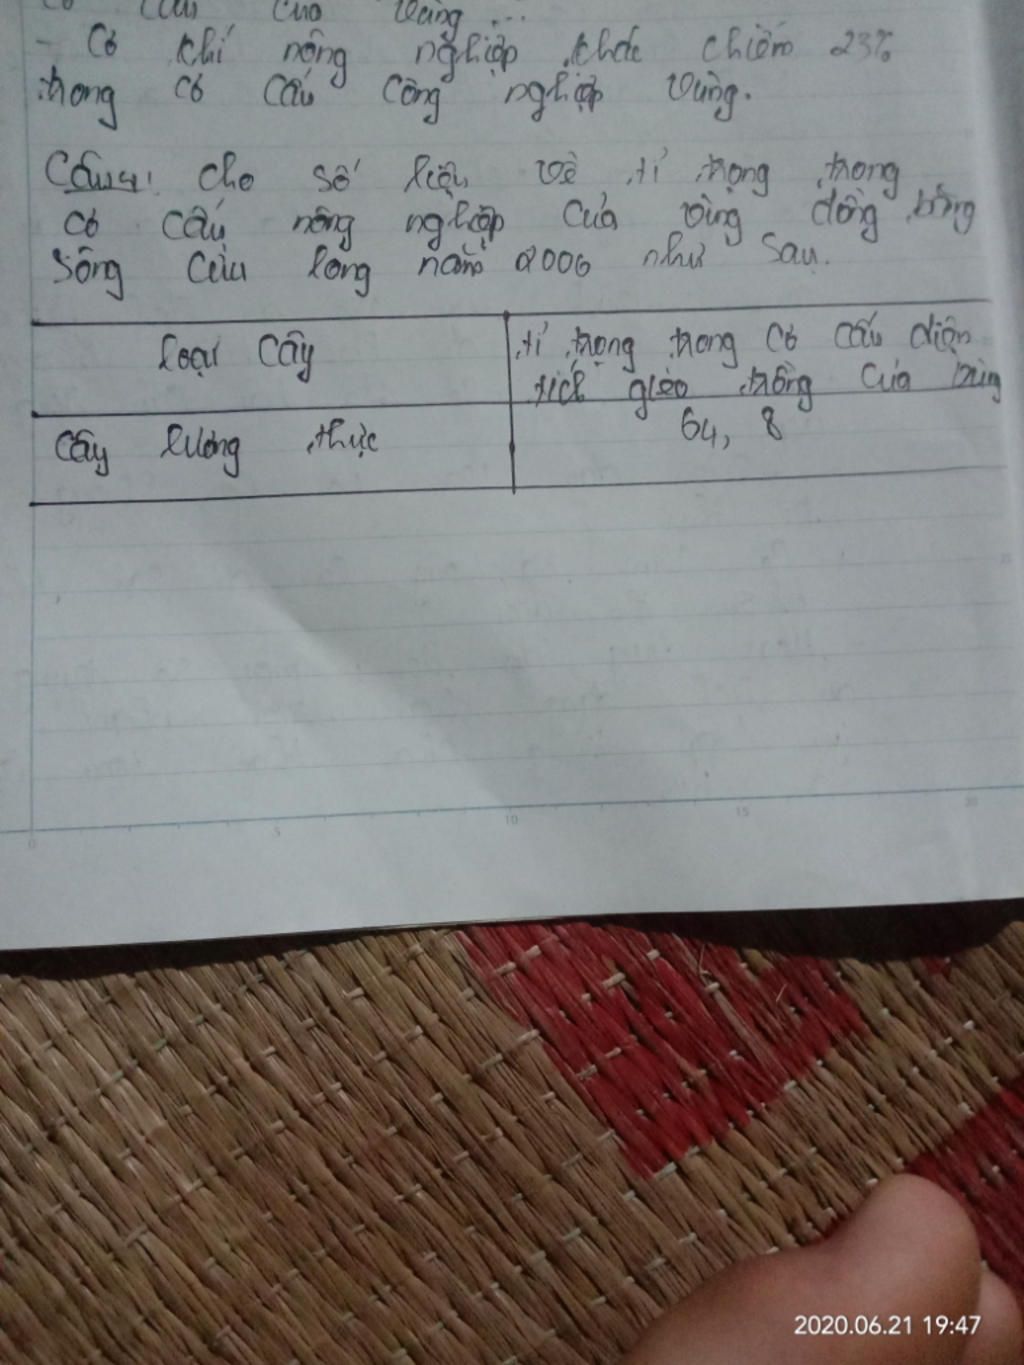 cấu của vùng...
- Cơ khí nông nghiệp khác chiếm 23%
trong cơ cấu công nghiệp vùng.
Câu 4: Cho số liệu về tỉ trọng trong
cơ cấu nông nghiệp của vùng đồng bằng
sông Cửu Long năm 2006 như sau.
Loại cây
tỉ trọng trong cơ cấu diện
tích gieo trồng của vùng
Cây lương thực
64,8
0 5 10 15 20
2020.06.21 19:47